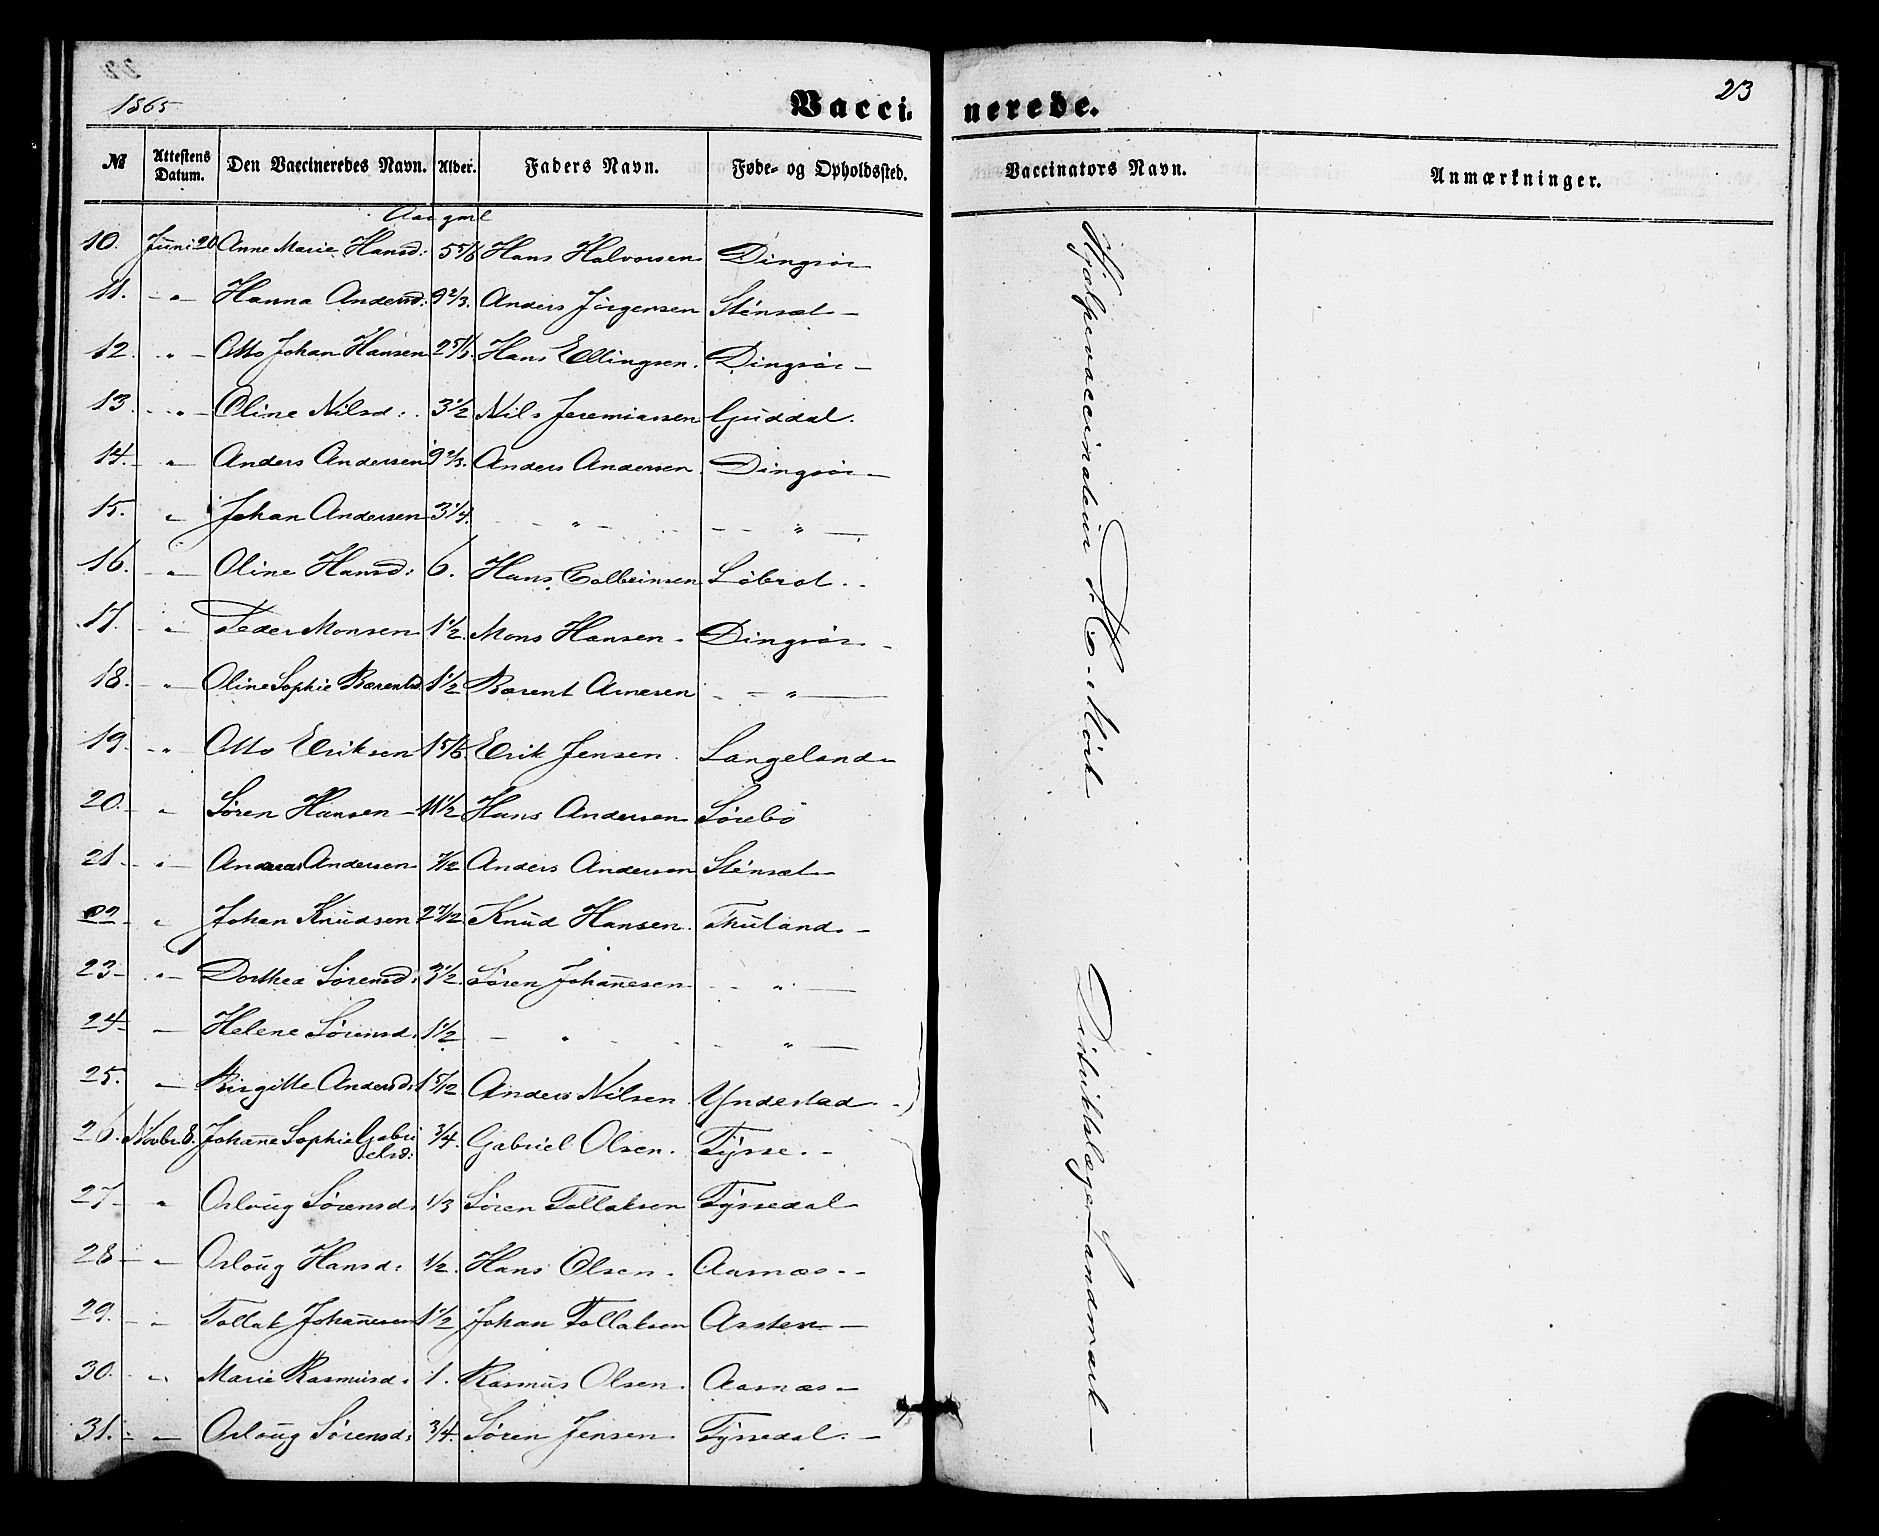 1865 Vaccinerede. 23
№ Attestens Datum. Den Vaccineredes Navn. Alder. Faders Navn. Føde- og Opholdssted. Vaccinators Navn. Anmærkninger.
Aar gml
10. Juni 20 Anne Marie Hansd: 5 5/6 Hans Halvorsen Dingsör
11. " Hanna Andersd: 9 2/3. Anders Jörgensen Stensæt
12. " Otto Johan Hansen 2 5/6. Hans Ellingsen. Dingsör
13. " Oline Nilsd: 3 1/2 Nils Jeremiassen Guddal.
14. " Anders Andersen 9 2/3. Anders Andersen Dingsör
15. " Johan Andersen 3 1/4. " "
16. " Oline Hansd: 6. Hans Colbeinsen Löbrot.
17. " Peder Monsen 1 1/2. Mons Hansen Dingsör
18. " Oline Sophie Barentsd. 1 1/2 Barent Arnesen "
19. " Otto Eriksen 1 5/6. Erik Jensen. Langeland
20. " Sören Hansen 11 1/2 Hans Andersen Sörebö
21. " Andreas Andersen 7/12 Anders Andersen Stensæt
22 " Johan Knudsen 2 7/12 Knud Hansen. Thuland
23 " Dorthea Sörensd: 3 1/2. Sören Johanesen "
24 Helene Sörensd: 1 1/2 " "
25. " Birgitte Andersd: 1 5/12 Anders Nilsen Yndestad
26. Novbr 8. Johanne Sophie Gabri
elsd: 3/4. Gabriel Olsen. Tysse.
27 " Osloug Sörensd: 1/3 Sören Tollaksen Tyssedal
28 " Osloug Hansd: 1/2. Hans Olsen. Aarnæs
29. " Tollak Johannesen 1 1/2 Johan Tollaksen Aasten
30. " Marie Rasmusd: 1. Rasmus Olsen. Aasnæs
31. " Osloug Sörensd: 3/4. Sören Jensen. Tyssedal.
Hjælpevaccinateur
Distriktslæge Landmark